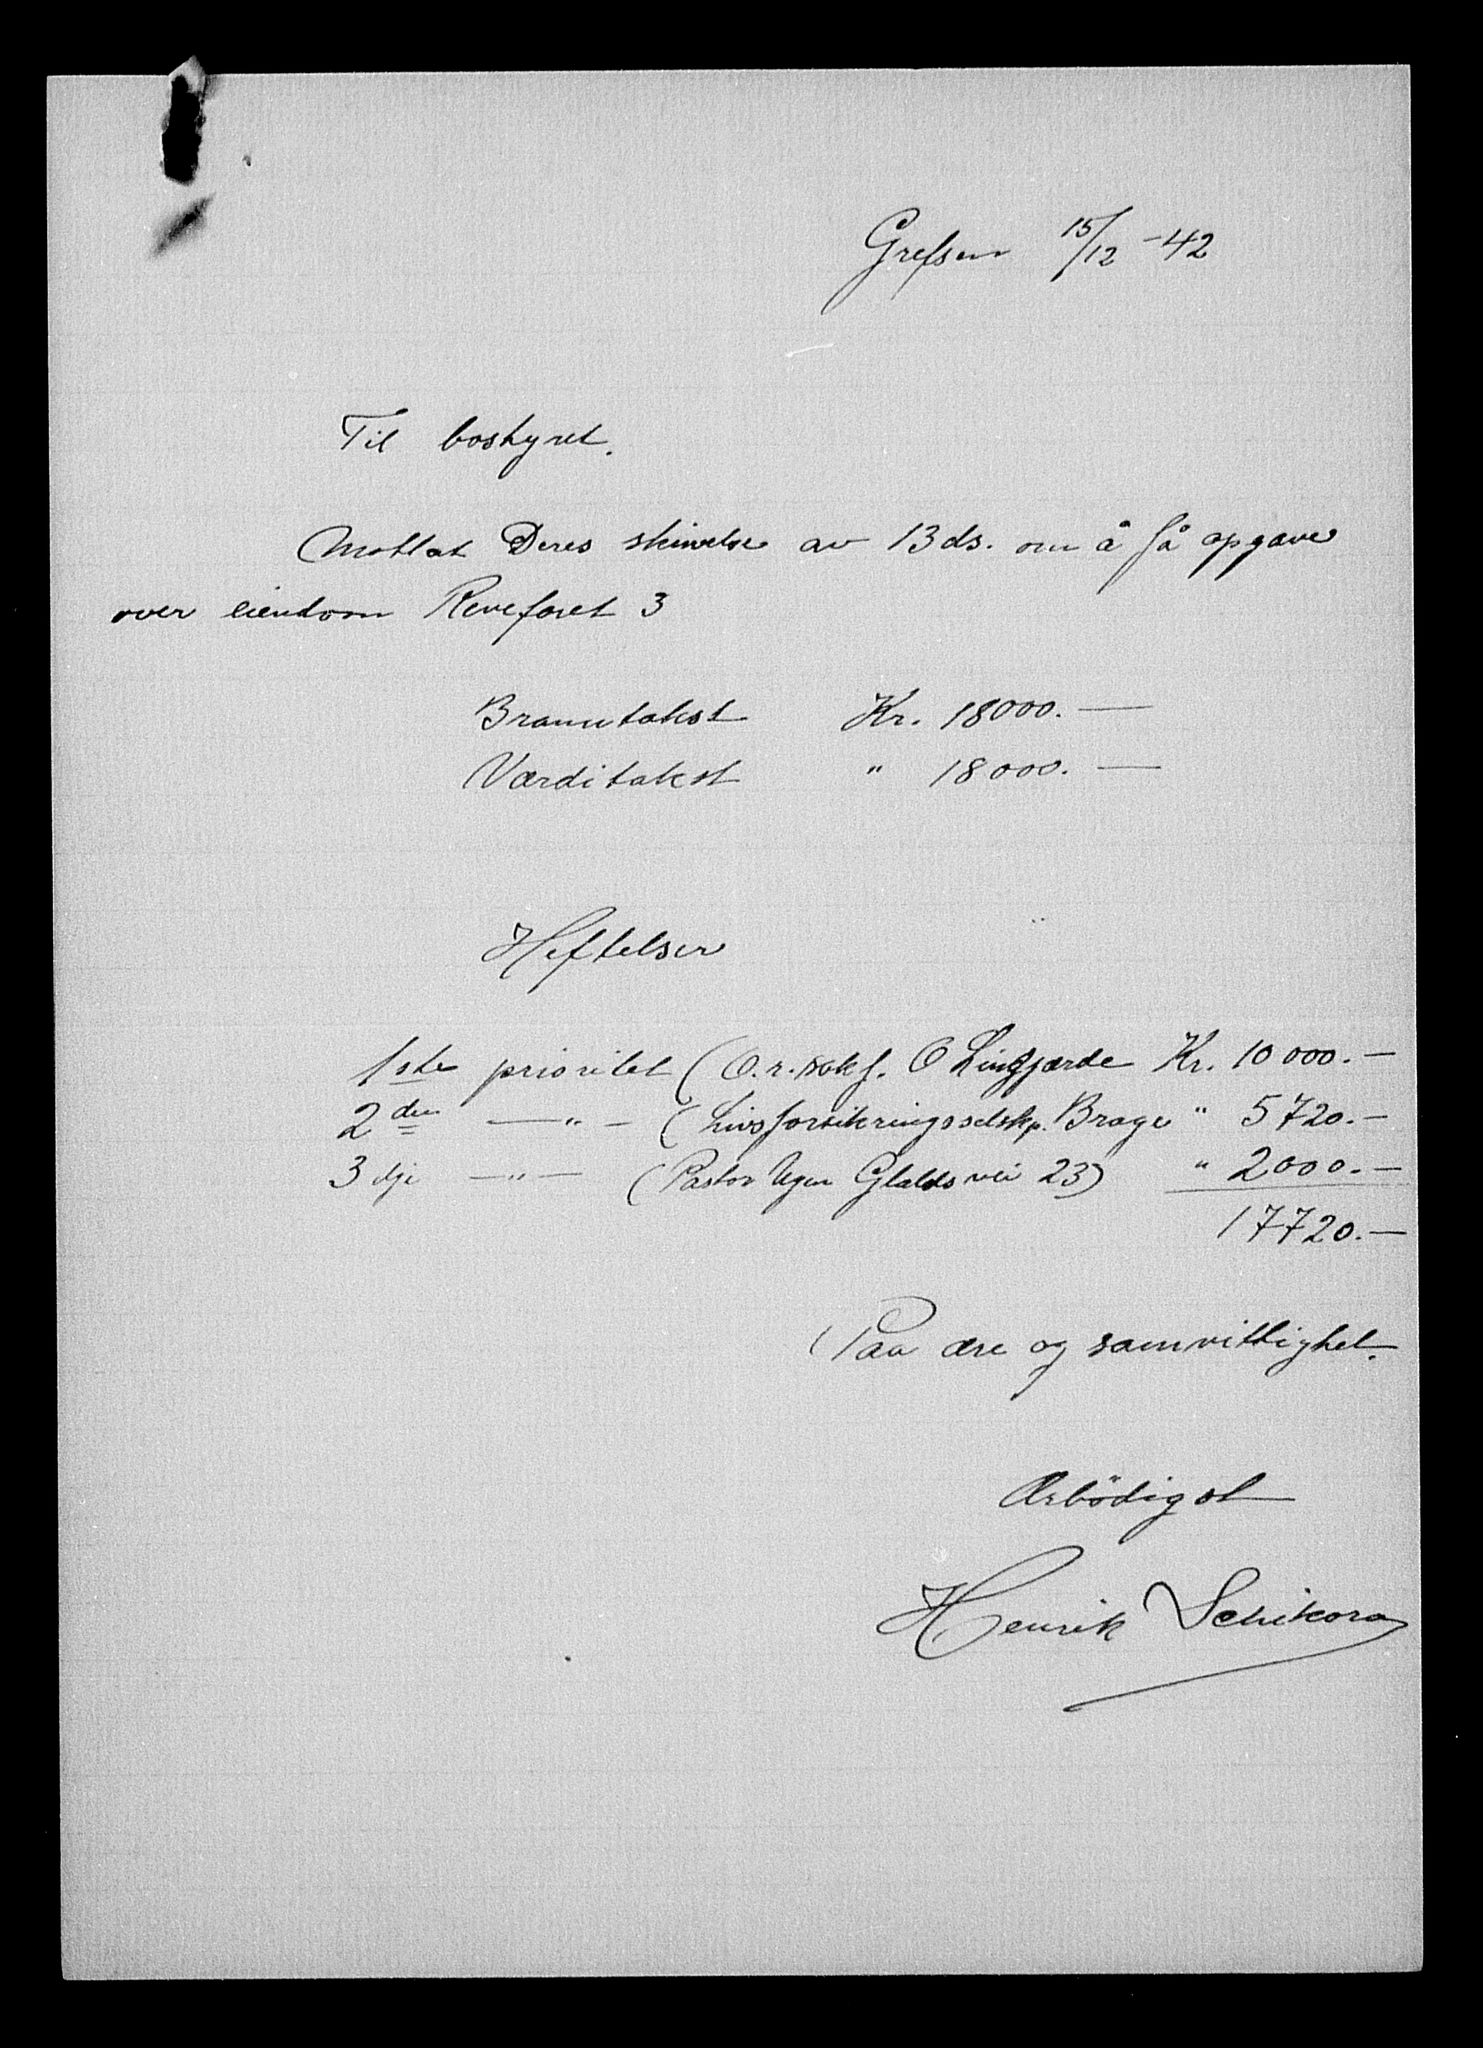 Grefsen 15/12 -42
Til bostyret.
Mottat Deres skrivelse av 13 ds. om å få opgave
over eiendom Reveforet 3
Branntakst Kr. 18000.—
Værditakst " 18000.—
Heftelser
1ste prioritet (O.r.sakf. O Lingjærde Kr. 10 000.—
2den —"— (Livsforsikringsselskp. Brage " 5720.—
3dje —"— (Pastor Glatds vei 23) " 2000.—
17720.—
Paa ære og samvittighet.
Ærbödigst
Henrik Schikora